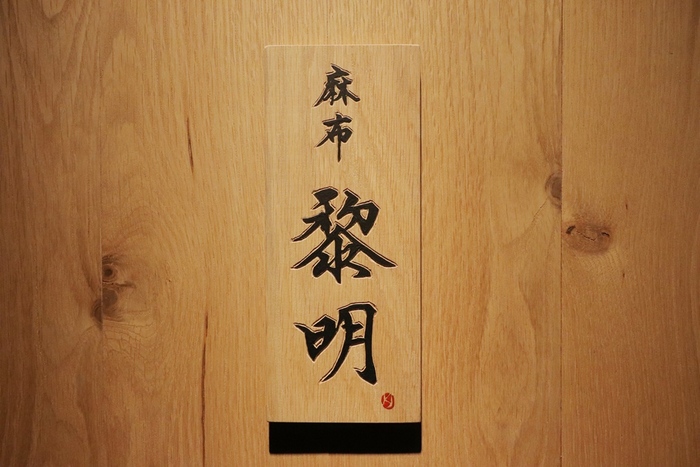 麻布
黎明
KJ